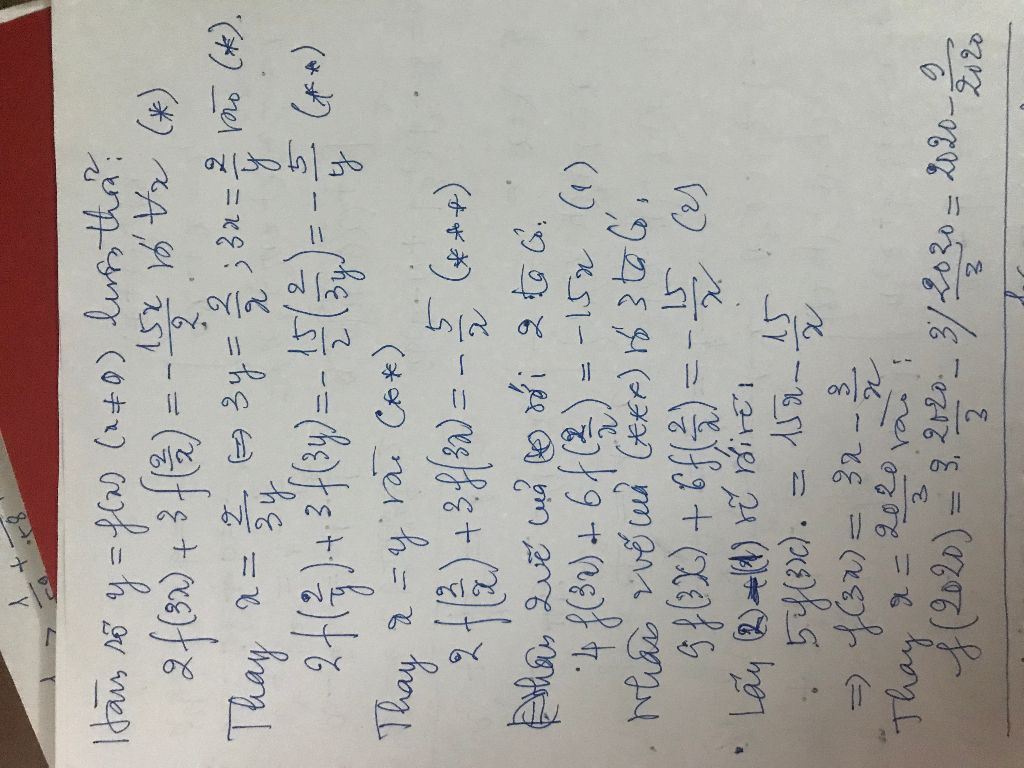 Hàm số y = f(x) (x ≠ 0) luôn thoả:
2f(3x) + 3f(2/x) = -15x/2 với ∀x (*)
Thay x = 2/3y ⇔ 3y = 2/x ; 3x = 2/y vào (*).
2f(2/y) + 3f(3y) = -15/2(2/3y) = -5/y (**)
Thay x = y vào (**)
2f(2/x) + 3f(3x) = -5/x (***)
Nhân 2 vế của (*) với 2 ta có:
4f(3x) + 6f(2/x) = -15x (1)
Nhân 2 vế của (***) với 3 ta có:
9f(3x) + 6f(2/x) = -15/x (2)
Lấy (2) - (1) vế với vế:
5f(3x) = 15x - 15/x
⇒ f(3x) = 3x - 3/x
Thay x = 2020/3 vào:
f(2020) = 3.2020/3 - 3/2020/3 = 2020 - 9/2020